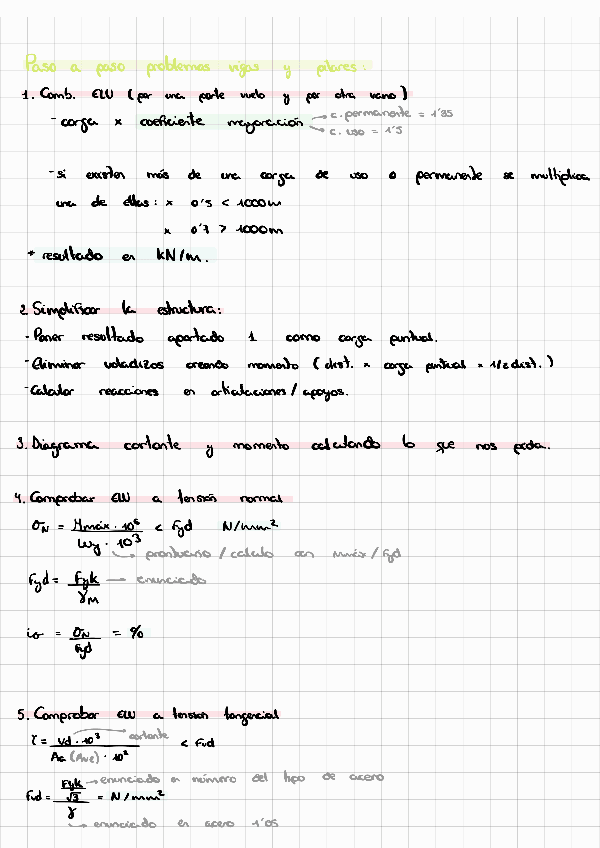 Paso a paso problemas vigas y pilares:
1. Comb. ELU (por una parte vuelo y por otra vano)
- carga x coeficiente mayoración → c. permanente = 1'35
→ c. uso = 1'5
- si existen más de una carga de uso o permanente se multiplica
una de ellas: x 0'5 < 1000m
x 0'7 > 1000m
* resultado en kN/m.
2. Simplificar la estructura:
- Poner resultado apartado 1 como carga puntual.
- Eliminar voladizos creando momento (dist. x carga puntual x 1/2 dist.)
- Calcular reacciones en articulaciones/apoyos.
3. Diagrama cortante y momento calculando lo que nos pida.
4. Comprobar ELU a tensión normal
σN = Mmáx · 10⁶ / Wy · 10³ < Fyd N/mm²
→ prontuario / calculo con Mmáx / Fyd
Fyd = Fyk / γM → enunciado
iσ = σN / Fyd = %
5. Comprobar ELU a tensión tangencial
τ = Vd · 10³ / Aa (Ave) · 10² < Fvd → cortante
Fyk → enunciado en número del tipo de acero
Fvd = Fyk/√3 / γ = N/mm²
→ enunciado en acero 1'05